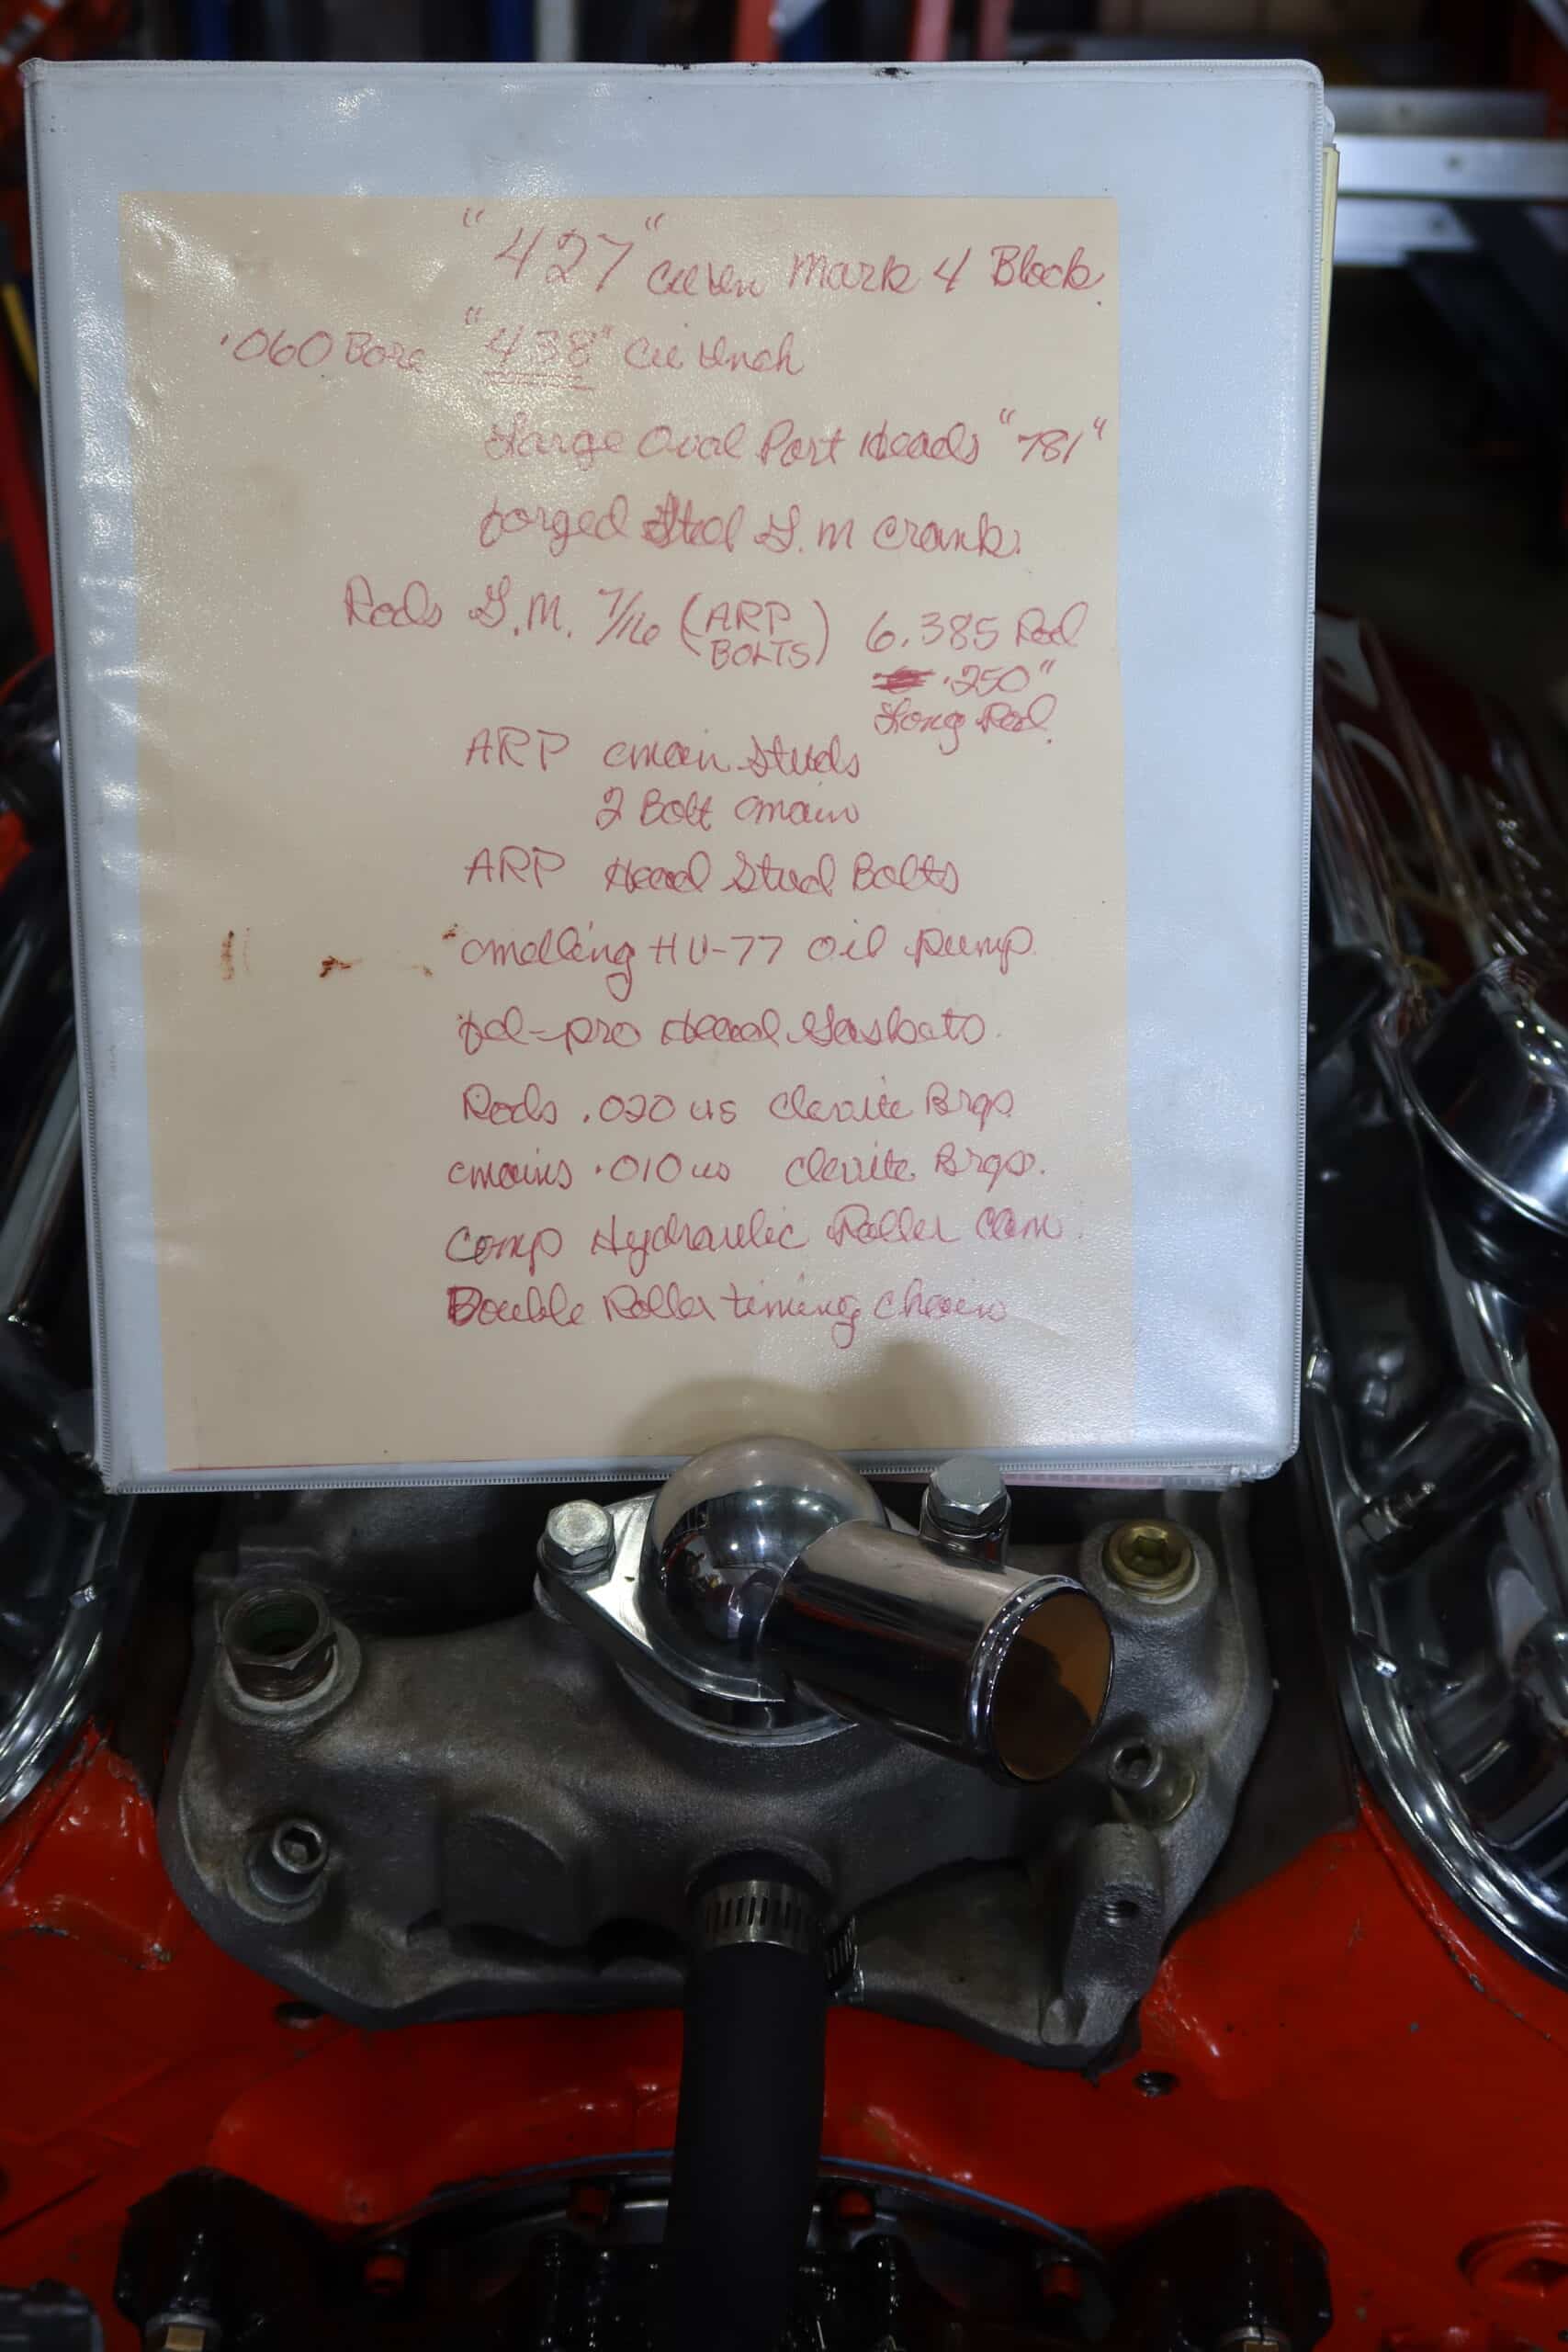 "427" cu in Mark 4 Block
.060 Bore "438" cu inch
Large Oval Port Heads "781"
forged Steel G.M Crank.
Rods G.M. 7/16 (ARP BOLTS) 6.385 Rod
.250"
Long Rod.
ARP main Studs
2 Bolt main
ARP Head Stud Bolts
melling HV-77 Oil pump.
fel-pro Head Gaskets.
Rods .020 us Clevite Brgs.
mains .010 us Clevite Brgs.
Comp Hydraulic Roller Cam.
Double Roller timing chain